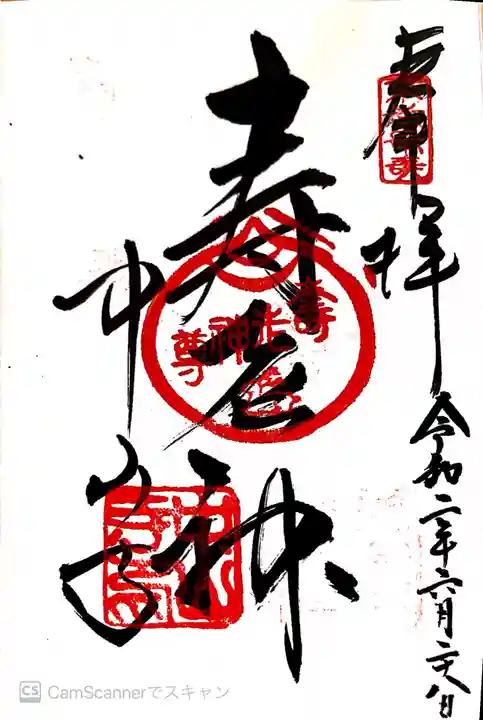 奉拝
令和二年六月二八日
寿老神
中山寺
壽老神尊
CamScannerでスキャン